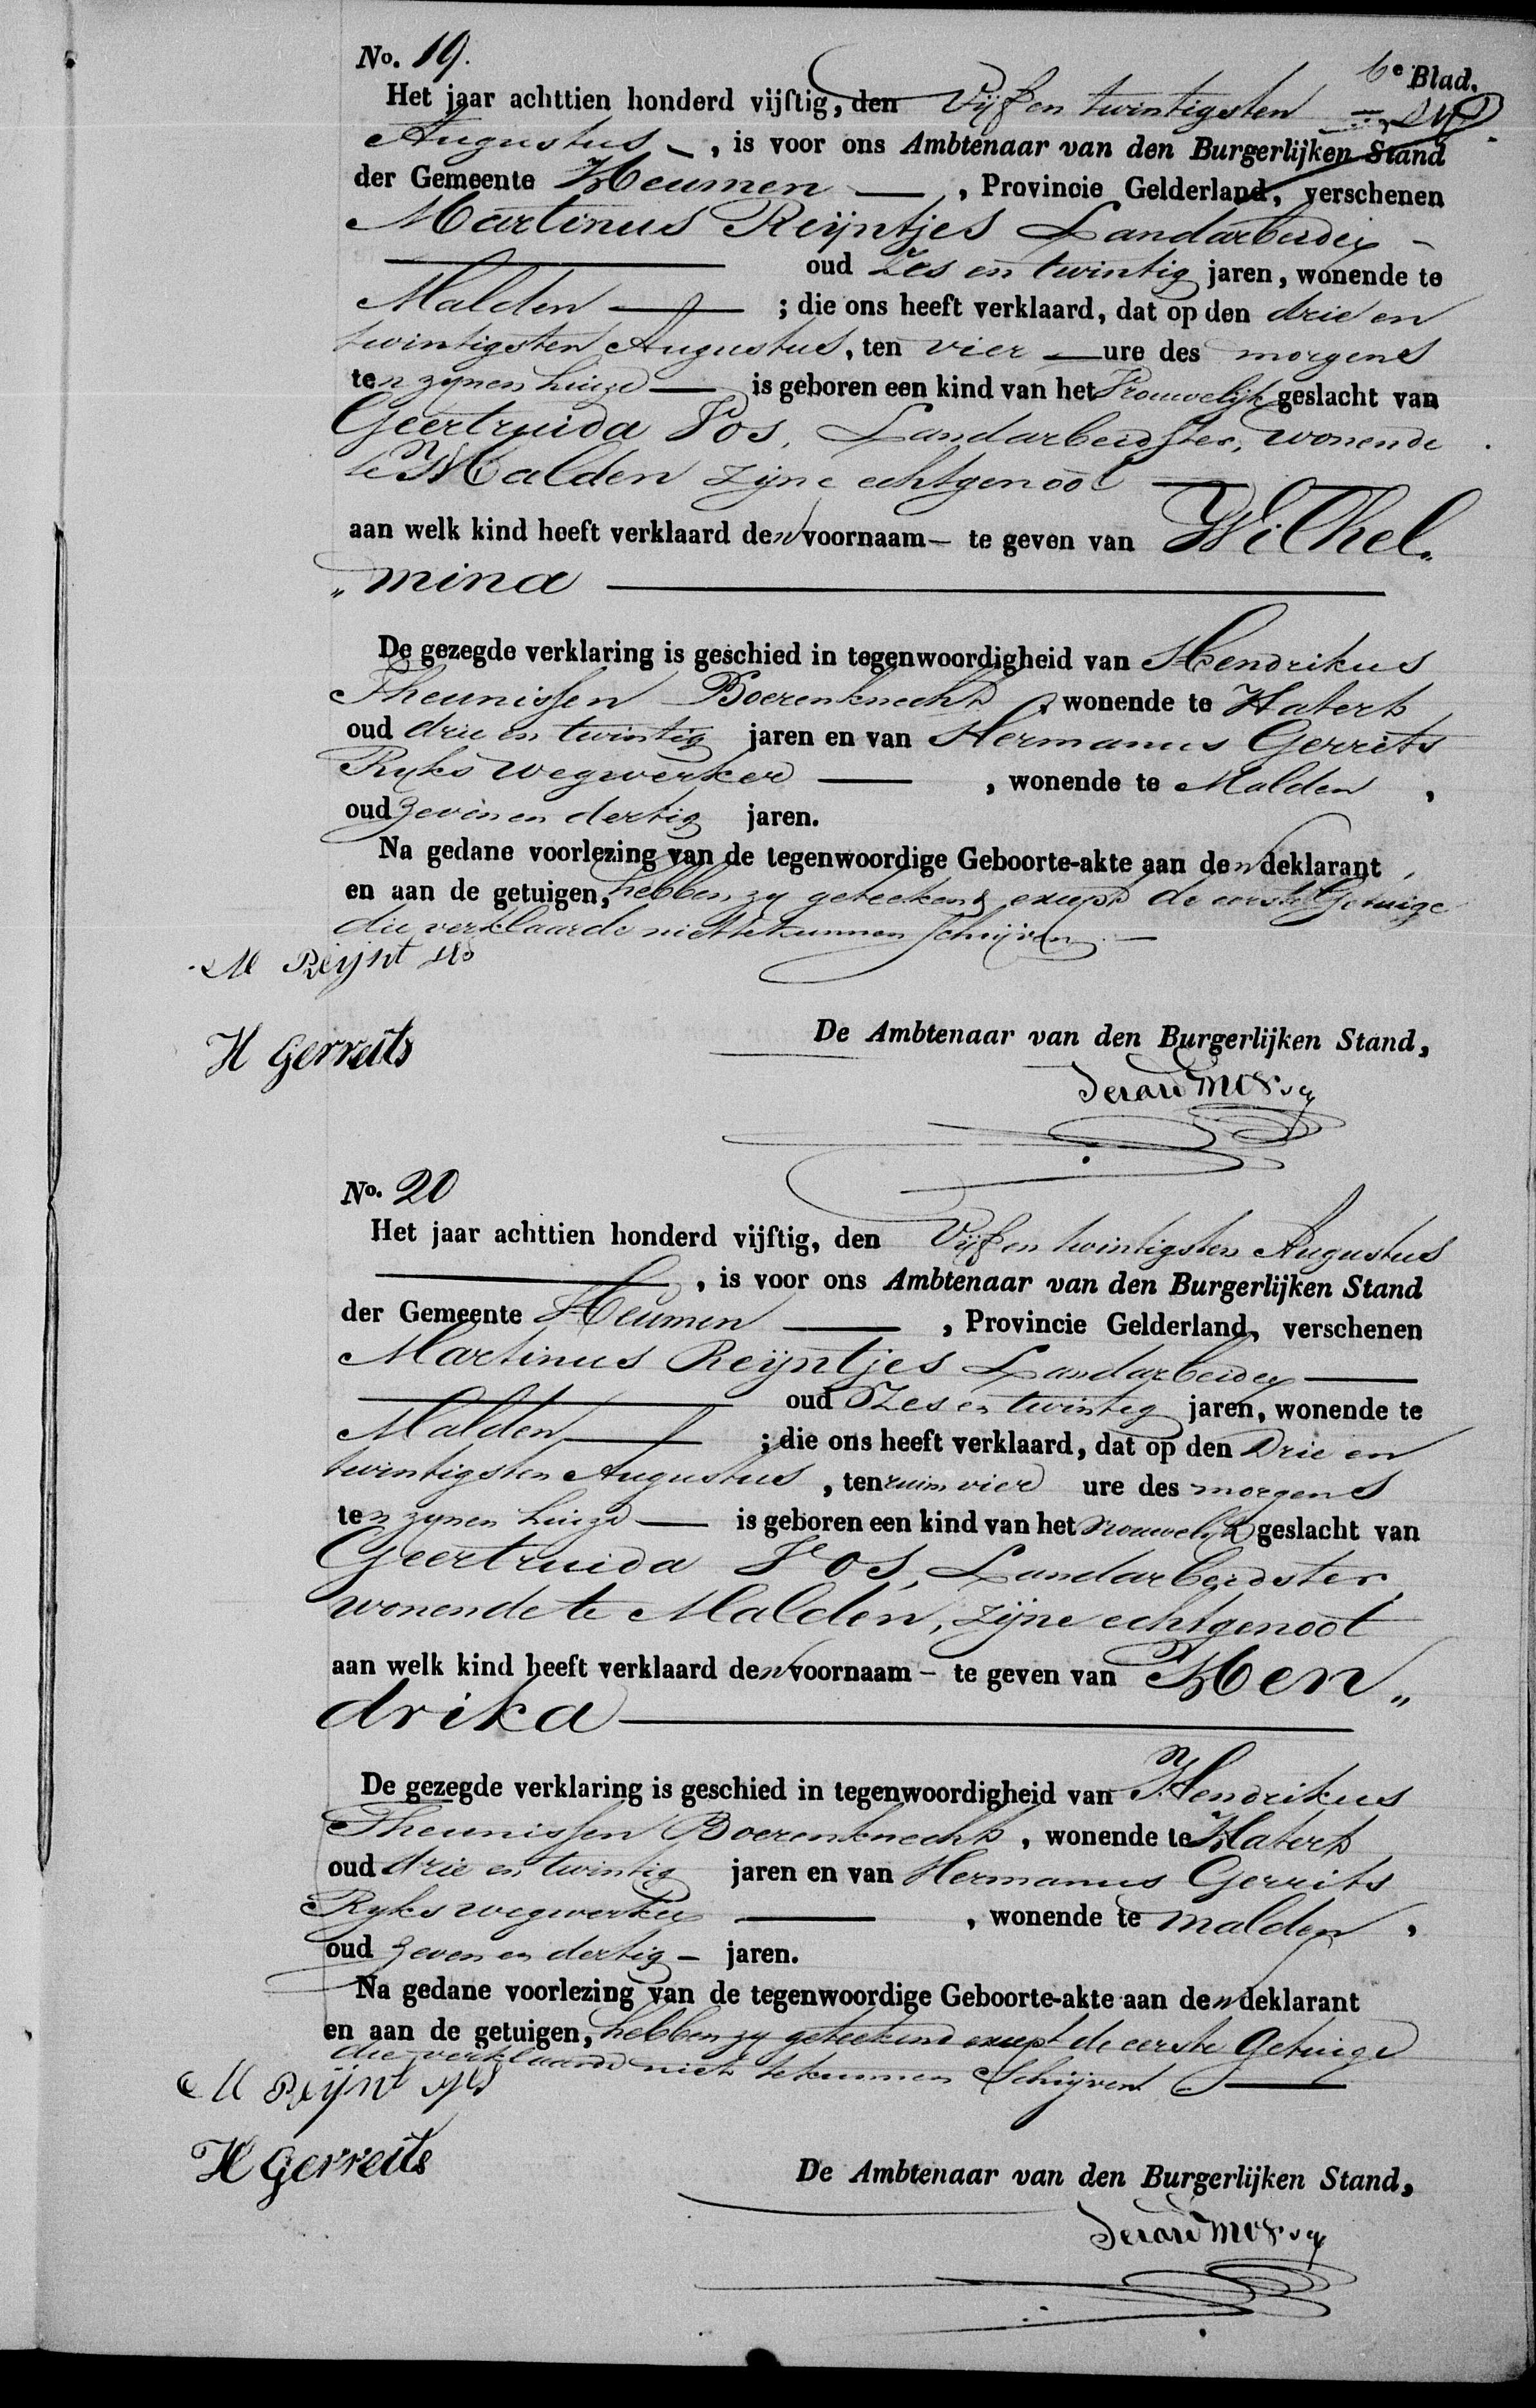 No. 19.
6e Blad.
Het jaar achttien honderd vijftig, den Vijf en twintigsten
Augustus —, is voor ons Ambtenaar van den Burgerlijken Stand
der Gemeente Heumen — , Provincie Gelderland, verschenen
Martinus Reijntjes Landarbeider —
— oud Zes en twintig jaren, wonende te
Malden — ; die ons heeft verklaard, dat op den drie en
twintigsten Augustus, ten vier — ure des morgens
ten zynen huize — is geboren een kind van het Vrouwelijk geslacht van
Geertruida Vos, Landarbeidster, wonende
te Malden zijne echtgenoot —
aan welk kind heeft verklaard den voornaam — te geven van Wilhel„
„mina —
De gezegde verklaring is geschied in tegenwoordigheid van Hendrikus
Theunissen Boerenknecht, wonende te Hatert
oud drie en twintig jaren en van Hermanus Gerrits
Ryks wegwerker — , wonende te Malden ,
oud Zeven en dertig jaren.
Na gedane voorlezing van de tegenwoordige Geboorte-akte aan den deklarant
en aan de getuigen, hebben zy geteekend, except de eerste Getuige
die verklaarde niet te kunnen schrijven. —
M Reijnt
H Gerreits
De Ambtenaar van den Burgerlijken Stand,
No. 20
Het jaar achttien honderd vijftig, den Vijf en twintigsten Augustus
— , is voor ons Ambtenaar van den Burgerlijken Stand
der Gemeente Heumen — , Provincie Gelderland, verschenen
Martinus Reijntjes Landarbeider —
— oud Zes en twintig jaren, wonende te
Malden — ; die ons heeft verklaard, dat op den Drie en
twintigsten Augustus , ten ruim vier ure des morgens
ten zynen huize — is geboren een kind van het Vrouwelijk geslacht van
Geertruida Vos, Landarbeidster,
wonende te Malden, zijne echtgenoot
aan welk kind heeft verklaard den voornaam — te geven van Hen„
drika —
De gezegde verklaring is geschied in tegenwoordigheid van Hendrikus
Theunissen Boerenknecht , wonende te Hatert
oud drie en twintig jaren en van Hermanus Gerrits
Ryks wegwerker — , wonende te Malden ,
oud Zeven en dertig — jaren.
Na gedane voorlezing van de tegenwoordige Geboorte-akte aan den deklarant
en aan de getuigen, hebben zy geteekend except de eerste Getuige
die verklaarde niet te kunnen Schrijven —
M Reijnt
H Gerreits
De Ambtenaar van den Burgerlijken Stand,